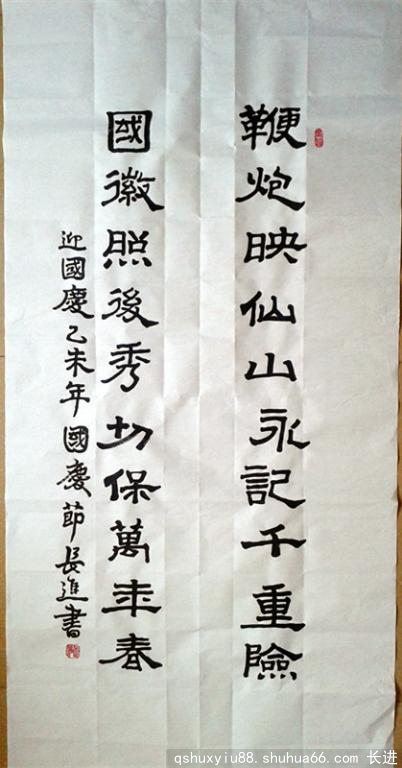 鞭炮映仙山永记千重險
國徽照後秀切保萬年春
迎國慶乙未年國慶節長進書
qshuxyiu88. shuhua66. com 长进